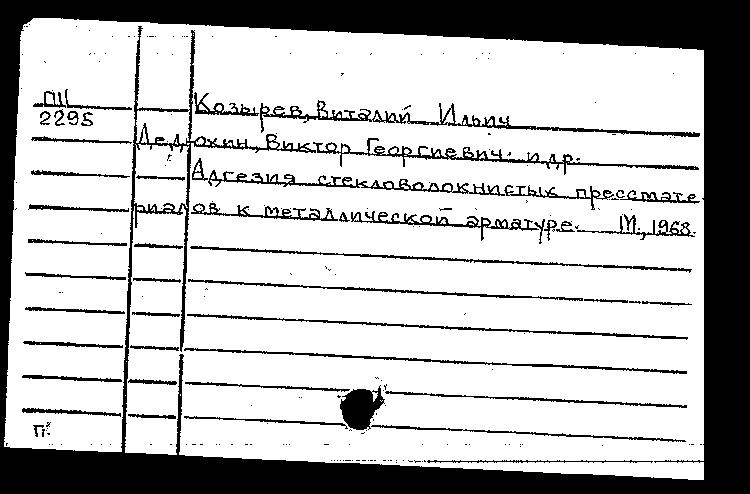 П11
2295
Козырев, Виталий Ильич
Дедюхин, Виктор Георгиевич. и др.
Адгезия стекловолокнистых прессмате-
риалов к металлической арматуре. М., 1968.
П.